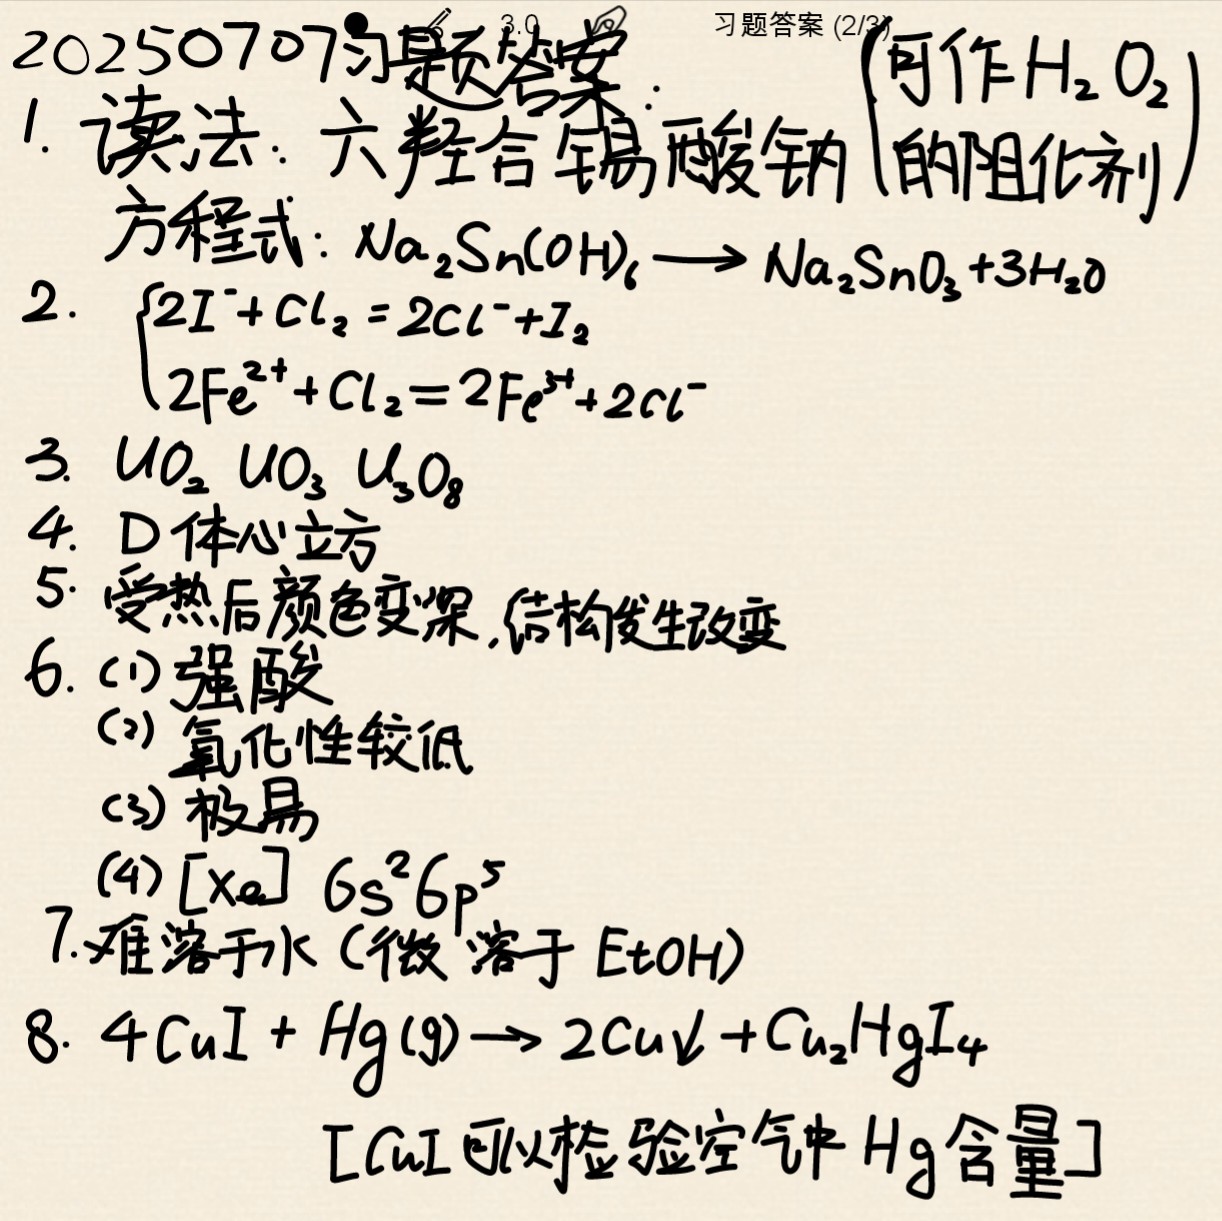 3.0
习题答案 (2/3)
20250707习题答案:
(可作H₂O₂的阻化剂)
1. 读法: 六羟合锡酸钠
方程式: Na₂Sn(OH)₆ ⟶ Na₂SnO₃+3H₂O
2. {2I⁻+Cl₂=2Cl⁻+I₂
2Fe²⁺+Cl₂=2Fe³⁺+2Cl⁻
3. UO₂ UO₃ U₃O₈
4. D 体心立方
5. 受热后颜色变深,结构发生改变
6. (1) 强酸
(2) 氧化性较低
(3) 极易
(4) [Xe] 6s²6p⁵
7. 难溶于水 (微溶于 EtOH)
8. 4CuI + Hg(g) → 2Cu↓ + Cu₂HgI₄
[CuI可以检验空气中Hg含量]